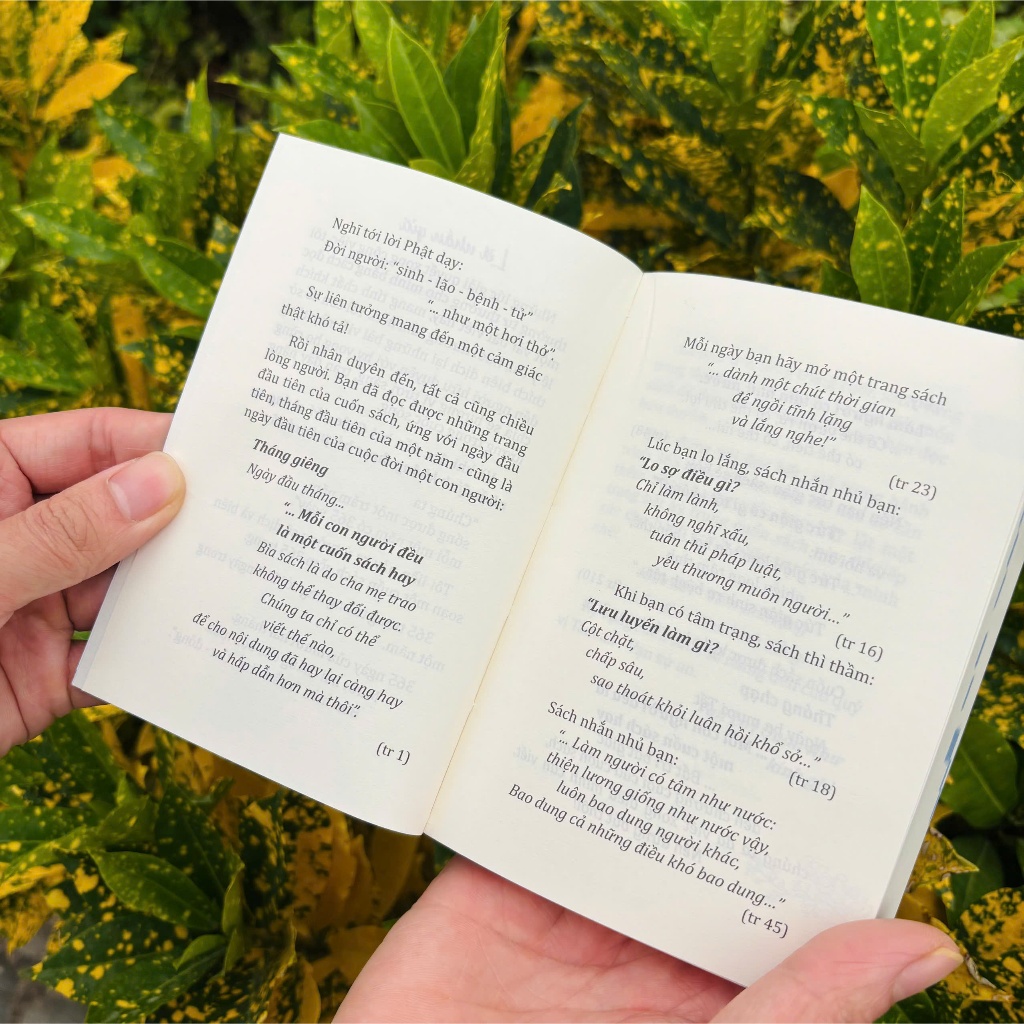 Nghĩ tới lời Phật dạy:
Đời người: "sinh - lão - bệnh - tử"
"... như một hơi thở".
Sự liên tưởng mang đến một cảm giác
thật khó tả!
Rồi nhân duyên đến, tất cả cũng chiều
lòng người. Bạn đã đọc được những trang
đầu tiên của cuốn sách, ứng với ngày đầu
tiên, tháng đầu tiên của một năm - cũng là
ngày đầu tiên của cuộc đời một con người:
Tháng giêng
Ngày đầu tháng...
"... Mỗi con người đều
là một cuốn sách hay
Bìa sách là do cha mẹ trao
không thể thay đổi được.
Chúng ta chỉ có thể
viết thế nào,
để cho nội dung đã hay lại càng hay
và hấp dẫn hơn mà thôi".
(tr 1)
Mỗi ngày bạn hãy mở một trang sách
"... dành một chút thời gian
để ngồi tĩnh lặng
và lắng nghe!"
(tr 23)
Lúc bạn lo lắng, sách nhắn nhủ bạn:
"Lo sợ điều gì?
Chỉ làm lành,
không nghĩ xấu,
tuân thủ pháp luật,
yêu thương muôn người..."
(tr 16)
Khi bạn có tâm trạng, sách thì thầm:
"Lưu luyến làm gì?
Cột chặt,
chấp sâu,
sao thoát khỏi luân hồi khổ sở..."
(tr 18)
Sách nhắn nhủ bạn:
"... Làm người có tâm như nước:
thiện lương giống như nước vậy,
luôn bao dung người khác,
Bao dung cả những điều khó bao dung..."
(tr 45)